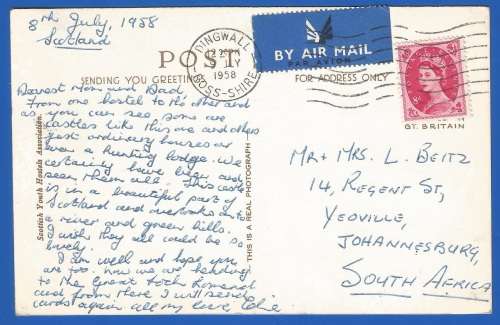 8th July, 1958
Scotland
POST
SENDING YOU GREETINGS
FOR ADDRESS ONLY
DINGWALL
JY
1958
ROSS-SHIRE
BY AIR MAIL
PAR AVION
GT. BRITAIN
Dearest Mom and Dad,
From one hostel to the other and
as you can see some are
castles like this one and others
just ordinary houses or
even a hunting lodge. We
certainly have been and
seen them all. This castle
is in a beautiful part of
Scotland and overlooks
a river and green hills.
I wish they all could be so
lovely.
I am well and hope you
are too. Now we are heading
to the Great Loch Lomond
and from there I will send
cards again all my love,
Scottish Youth Hostels Association.
THIS IS A REAL PHOTOGRAPH
Mr + Mrs. L. Beitz
14, Regent St,
Yeoville,
Johannesburg,
South Africa